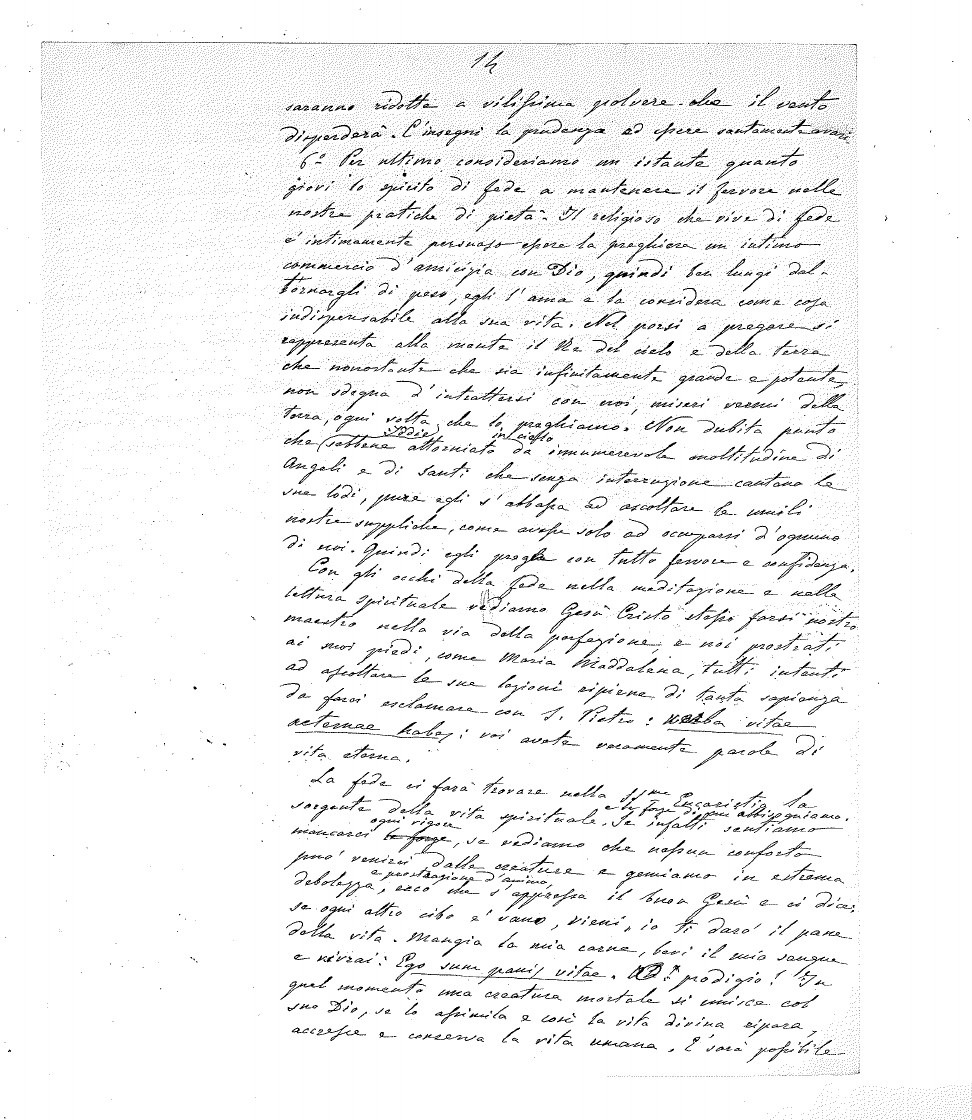 14
saranno ridotte a vilissima polvere che il vento
disperderà. C'insegni la prudenza ad essere santamente avari.
6º Per ultimo consideriamo un istante quanto
giovi lo spirito di fede a mantenere il fervore nelle
nostre pratiche di pietà. Il religioso che vive di fede
è intimamente persuaso essere la preghiera un intimo
commercio d'amicizia con Dio, quindi ben lungi dal
tornargli di peso, egli l'ama e la considera come cosa
indispensabile alla sua vita. Nel porsi a pregare si
rappresenta alla mente il Re del cielo e della terra
che nonostante che sia infinitamente grande e potente,
non sdegna d'intrattersi con noi, miseri vermi della
terra, ogni volta che lo preghiamo. Non dubita punto
Iddio in cielo
che sebbene attorniato da innumerevole moltitudine di
Angeli e di Santi che senza interruzione cantano le
sue lodi, pure egli s'abbassa ad ascoltare le umili
nostre suppliche, come avesse solo ad occuparsi d'ognuno
di noi. Quindi egli prega con tutto fervore e confidenza.
Con gli occhi della fede nella meditazione e nella
lettura spirituale vediamo Gesù Cristo stesso farsi nostro
maestro nella via della perfezione, e noi prostrati
ai suoi piedi, come Maria Maddalena, tutti intenti
ad ascoltare le sue lezioni ripiene di tanta sapienza
da farci esclamare con S. Pietro: verba vitae
aeternae habes: voi avete veramente parole di
vita eterna.
La fede ci farà trovare nella SSme Eucaristia la
sorgente della vita spirituale. Se infatti sentiamo
ogni vigore
mancarci le forze, se vediamo che nessun conforto
può venirci dalle creature e gemiamo in estrema
e prostrazione d'animo,
debolezza, ecco che s'appressa il buon Gesù e ci dice:
se ogni altro cibo è vano, vieni, io ti darò il pane
della vita. Mangia la mia carne, bevi il mio sangue
e vivrai: Ego sum panis vitae. prodigio! In
quel momento una creatura mortale si unisce col
suo Dio, se lo assimila e così la vita divina ripara,
accresce e conserva la vita umana. E sarà possibile